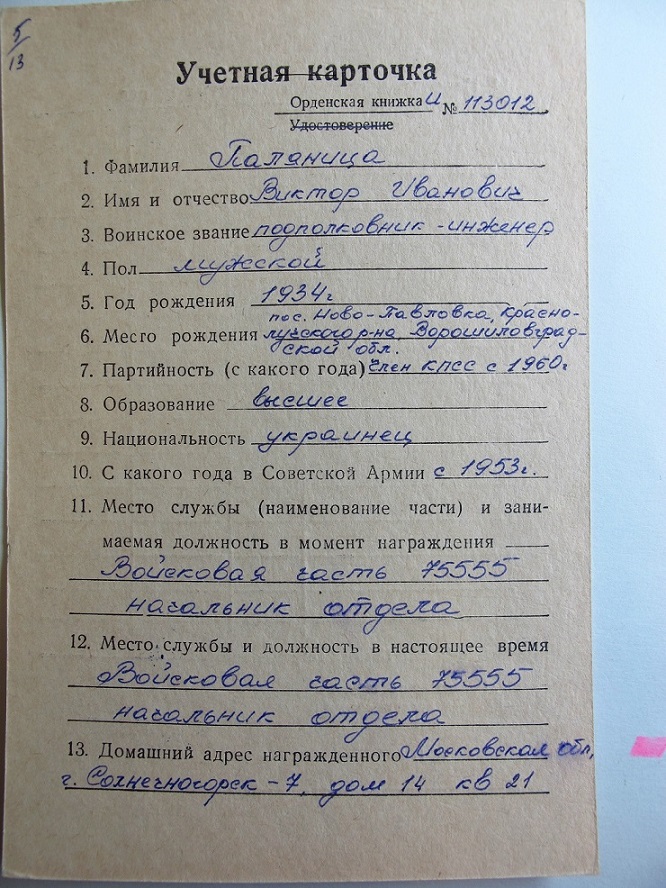 5/13
Учетная карточка
Орденская книжка И № 113012
Удостоверение
1. Фамилия Паляница
2. Имя и отчество Виктор Иванович
3. Воинское звание подполковник-инженер
4. Пол мужской
5. Год рождения 1934г
пос. Ново-Павловка, Красно-
6. Место рождения лучского р-на Ворошиловград-
ской обл.
7. Партийность (с какого года) член КПСС с 1960г
8. Образование высшее
9. Национальность украинец
10. С какого года в Советской Армии с 1953г.
11. Место службы (наименование части) и зани-
маемая должность в момент награждения
Войсковая часть 75555
начальник отдела
12. Место службы и должность в настоящее время
Войсковая часть 75555
начальник отдела
13. Домашний адрес награжденного Московская обл,
г. Солнечногорск-7, дом 14 кв 21